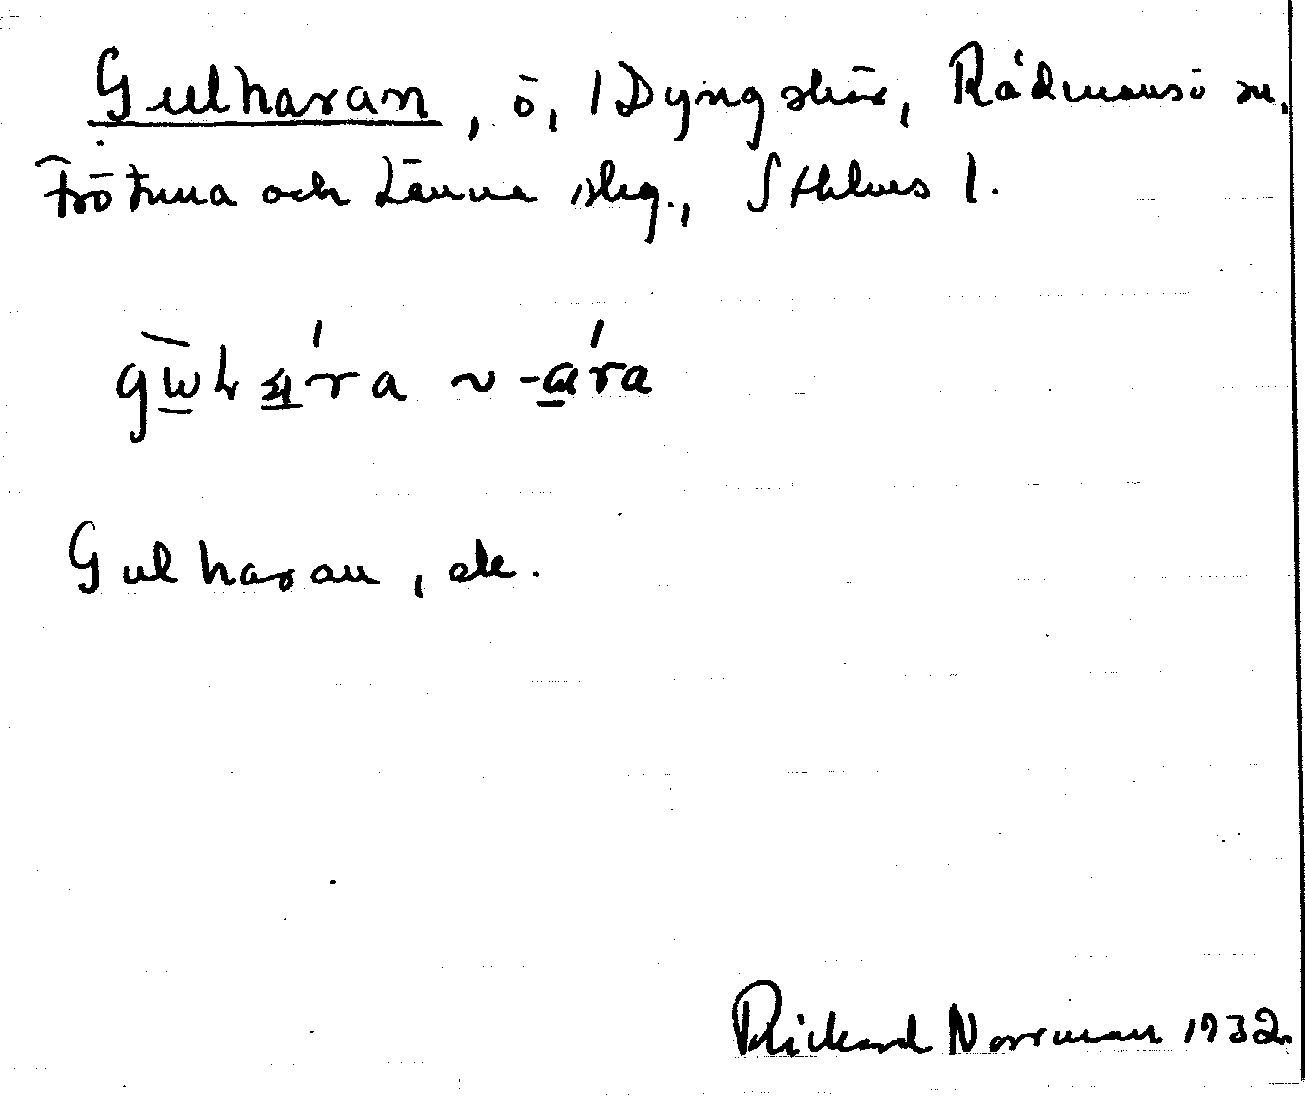 Gulharan, ö, Dyngskär, Rådmansö sn,
Frötuna och Länna skg., Sthlms l.
Gulharan, ek.
Rickard Norrman 1932.